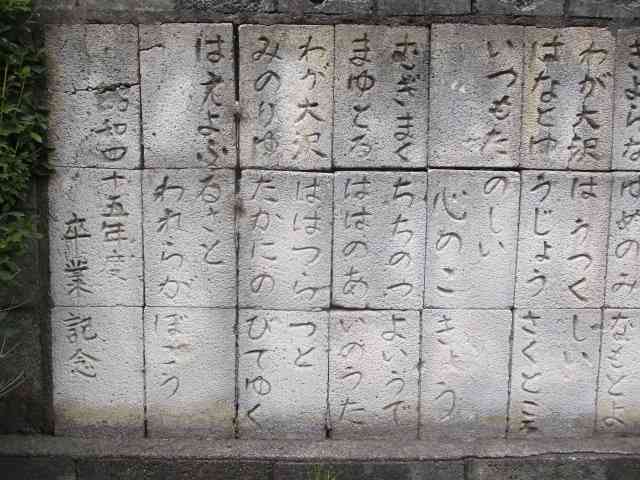 きよらなゆめのみなもとよ
わが大沢はうつくしい
はなとゆうじょうさくところ
いつもたのしい
心のこきょう
むぎまくちちのつよいうで
まゆとるははのあいのうた
わが大沢ははつらつと
みのりゆたかにのびてゆく
はえよふるさと
われらがぼこう
昭和四十五年度
卒業記念